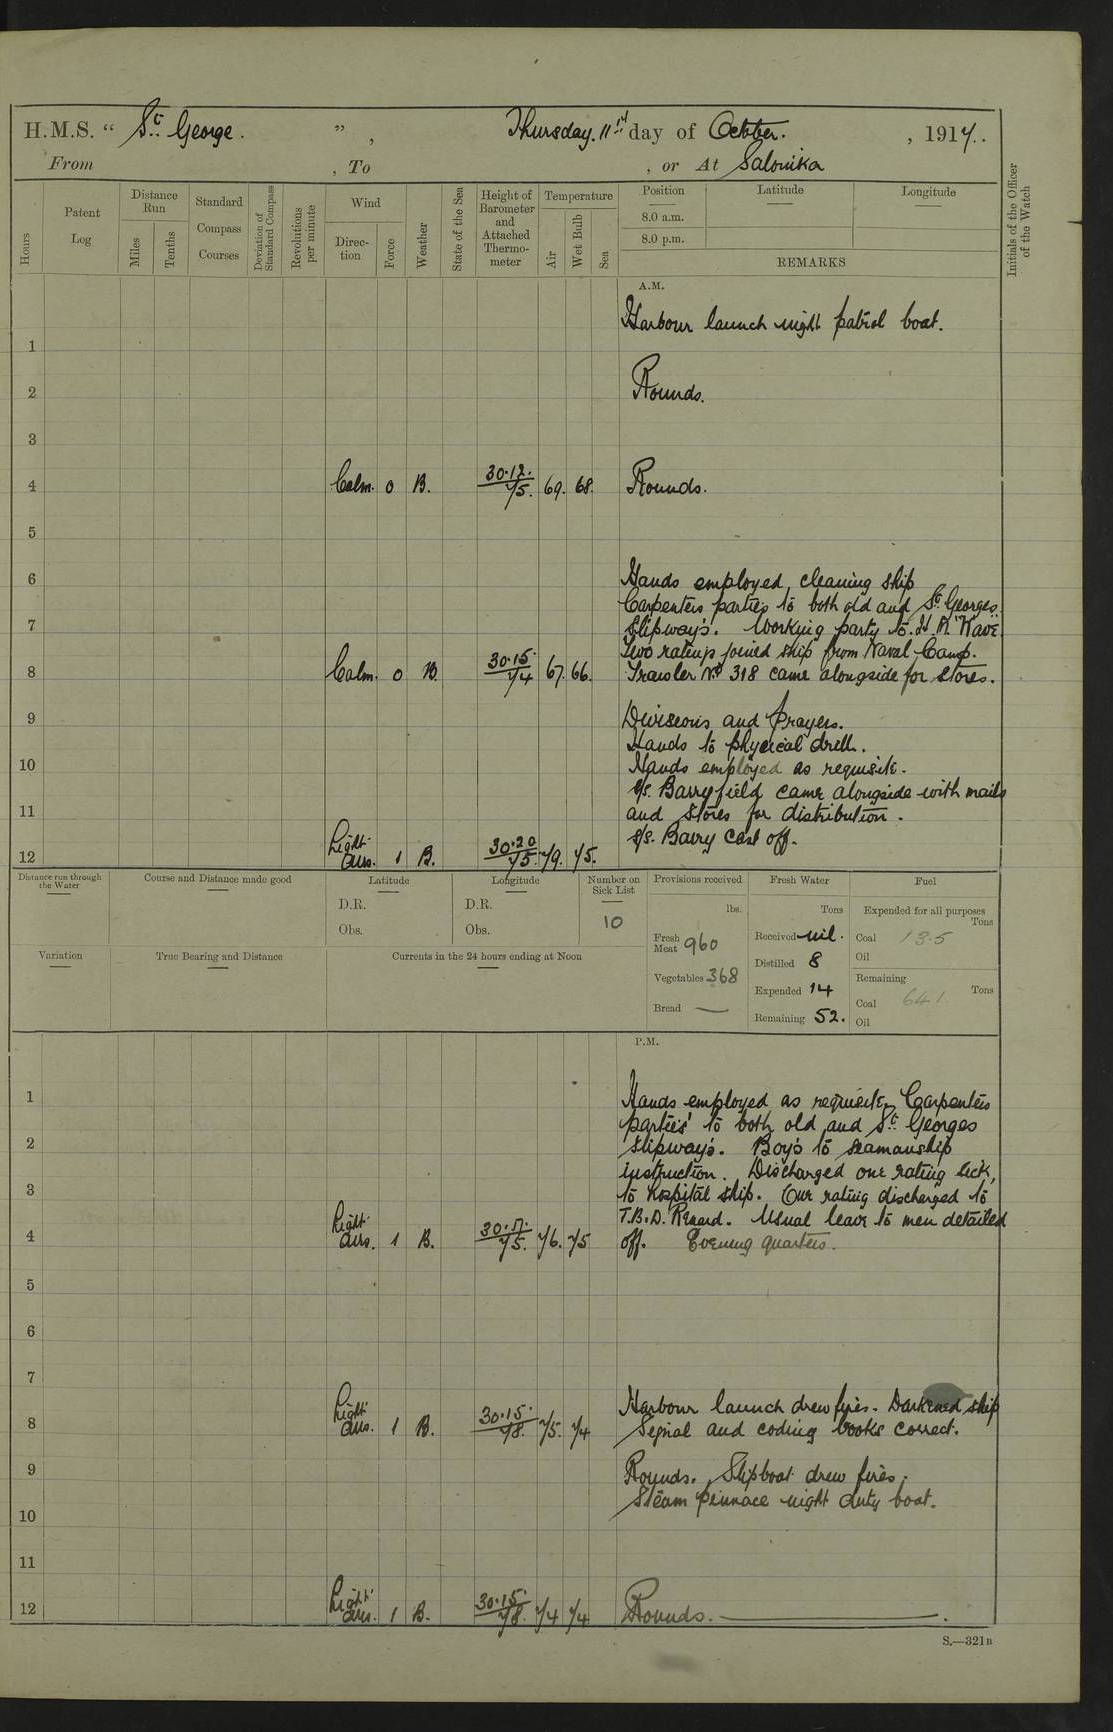 H.M.S. " St George. ", Thursday. 11th day of October. , 1917.
From , To , or At Salonika
Hours
Patent Log
Distance Run
Miles
Tenths
Standard Compass Courses
Deviation of Standard Compass
Revolutions per minute
Wind
Direction
Force
Weather
State of the Sea
Height of Barometer and Attached Thermometer
Temperature
Air
Wet Bulb
Sea
Position
Latitude
Longitude
8.0 a.m.
8.0 p.m.
REMARKS
Initials of the Officer of the Watch
A.M.
Harbour launch night patrol boat.
1
2 Rounds.
3
4 Calm. 0 B. 30.12. 75. 69. 68. Rounds.
5
6 Hands employed cleaning ship
Carpenters parties to both old and St Georges
7 slipways. Working party to H.M. Wave
Two ratings joined ship from Naval Camp.
8 Calm. 0 B. 30.15. 74 67. 66. Trawler No 318 came alongside for stores.
9 Divisions and prayers.
Hands to physical drill.
10 Hands employed as requisite.
s/s. Barryfield came alongside with mails
11 and stores for distribution.
s/s. Barry cast off.
12 Light airs. 1 B. 30.20 75. 79. 75.
Distance run through the Water
Course and Distance made good
Latitude
D.R.
Obs.
Longitude
D.R.
Obs.
Number on Sick List
10
Provisions received
lbs.
Fresh Meat 960
Vegetables 368
Bread —
Fresh Water
Tons
Received nil.
Distilled 8
Expended 14
Remaining 52.
Fuel
Expended for all purposes
Tons
Coal 13.5
Oil
Remaining
Tons
Coal 641
Oil
Variation
True Bearing and Distance
Currents in the 24 hours ending at Noon
P.M.
1 Hands employed as requisite, Carpenters
parties' to both old and St Georges
2 slipway's. Boy's to seamanship
instruction. Discharged one rating sick,
3 to hospital ship. One rating discharged to
T.B.D. Renard. Usual leave to men detailed
4 Light airs. 1 B. 30.17. 75. 76. 75 off. Evening quarters.
5
6
7
Harbour launch drew fires. Darkened ship
8 Light airs. 1 B. 30.15. 78. 75. 74 Signal and coding books correct.
9 Rounds. Slipboat drew fires.
Steam pinnace night duty boat.
10
11
12 Light airs. 1 B. 30.15. 78. 74 74 Rounds.
S.—321B